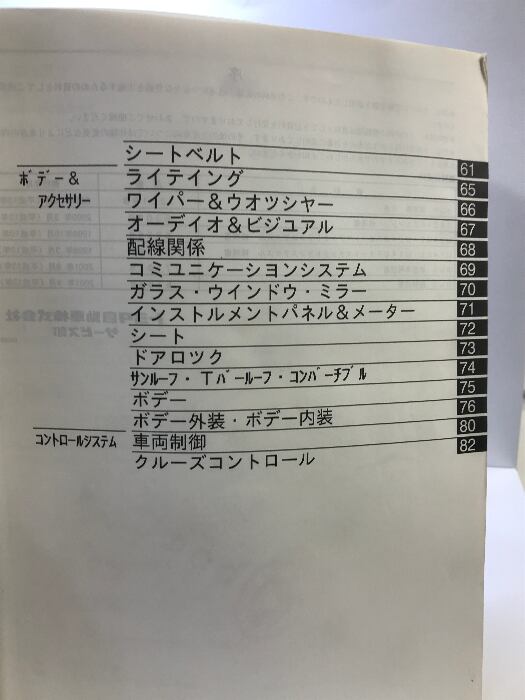 シートベルト 61
ボデー&
アクセサリー
ライテイング 65
ワイパー&ウオツシャー 66
オーデイオ&ビジユアル 67
配線関係 68
コミユニケーションシステム 69
ガラス・ウインドウ・ミラー 70
インストルメントパネル&メーター 71
シート 72
ドアロツク 73
サンルーフ・Tバールーフ・コンバーチブル 74
ボデー 75
ボデー外装・ボデー内装 76
コントロールシステム 車両制御 80
クルーズコントロール 82